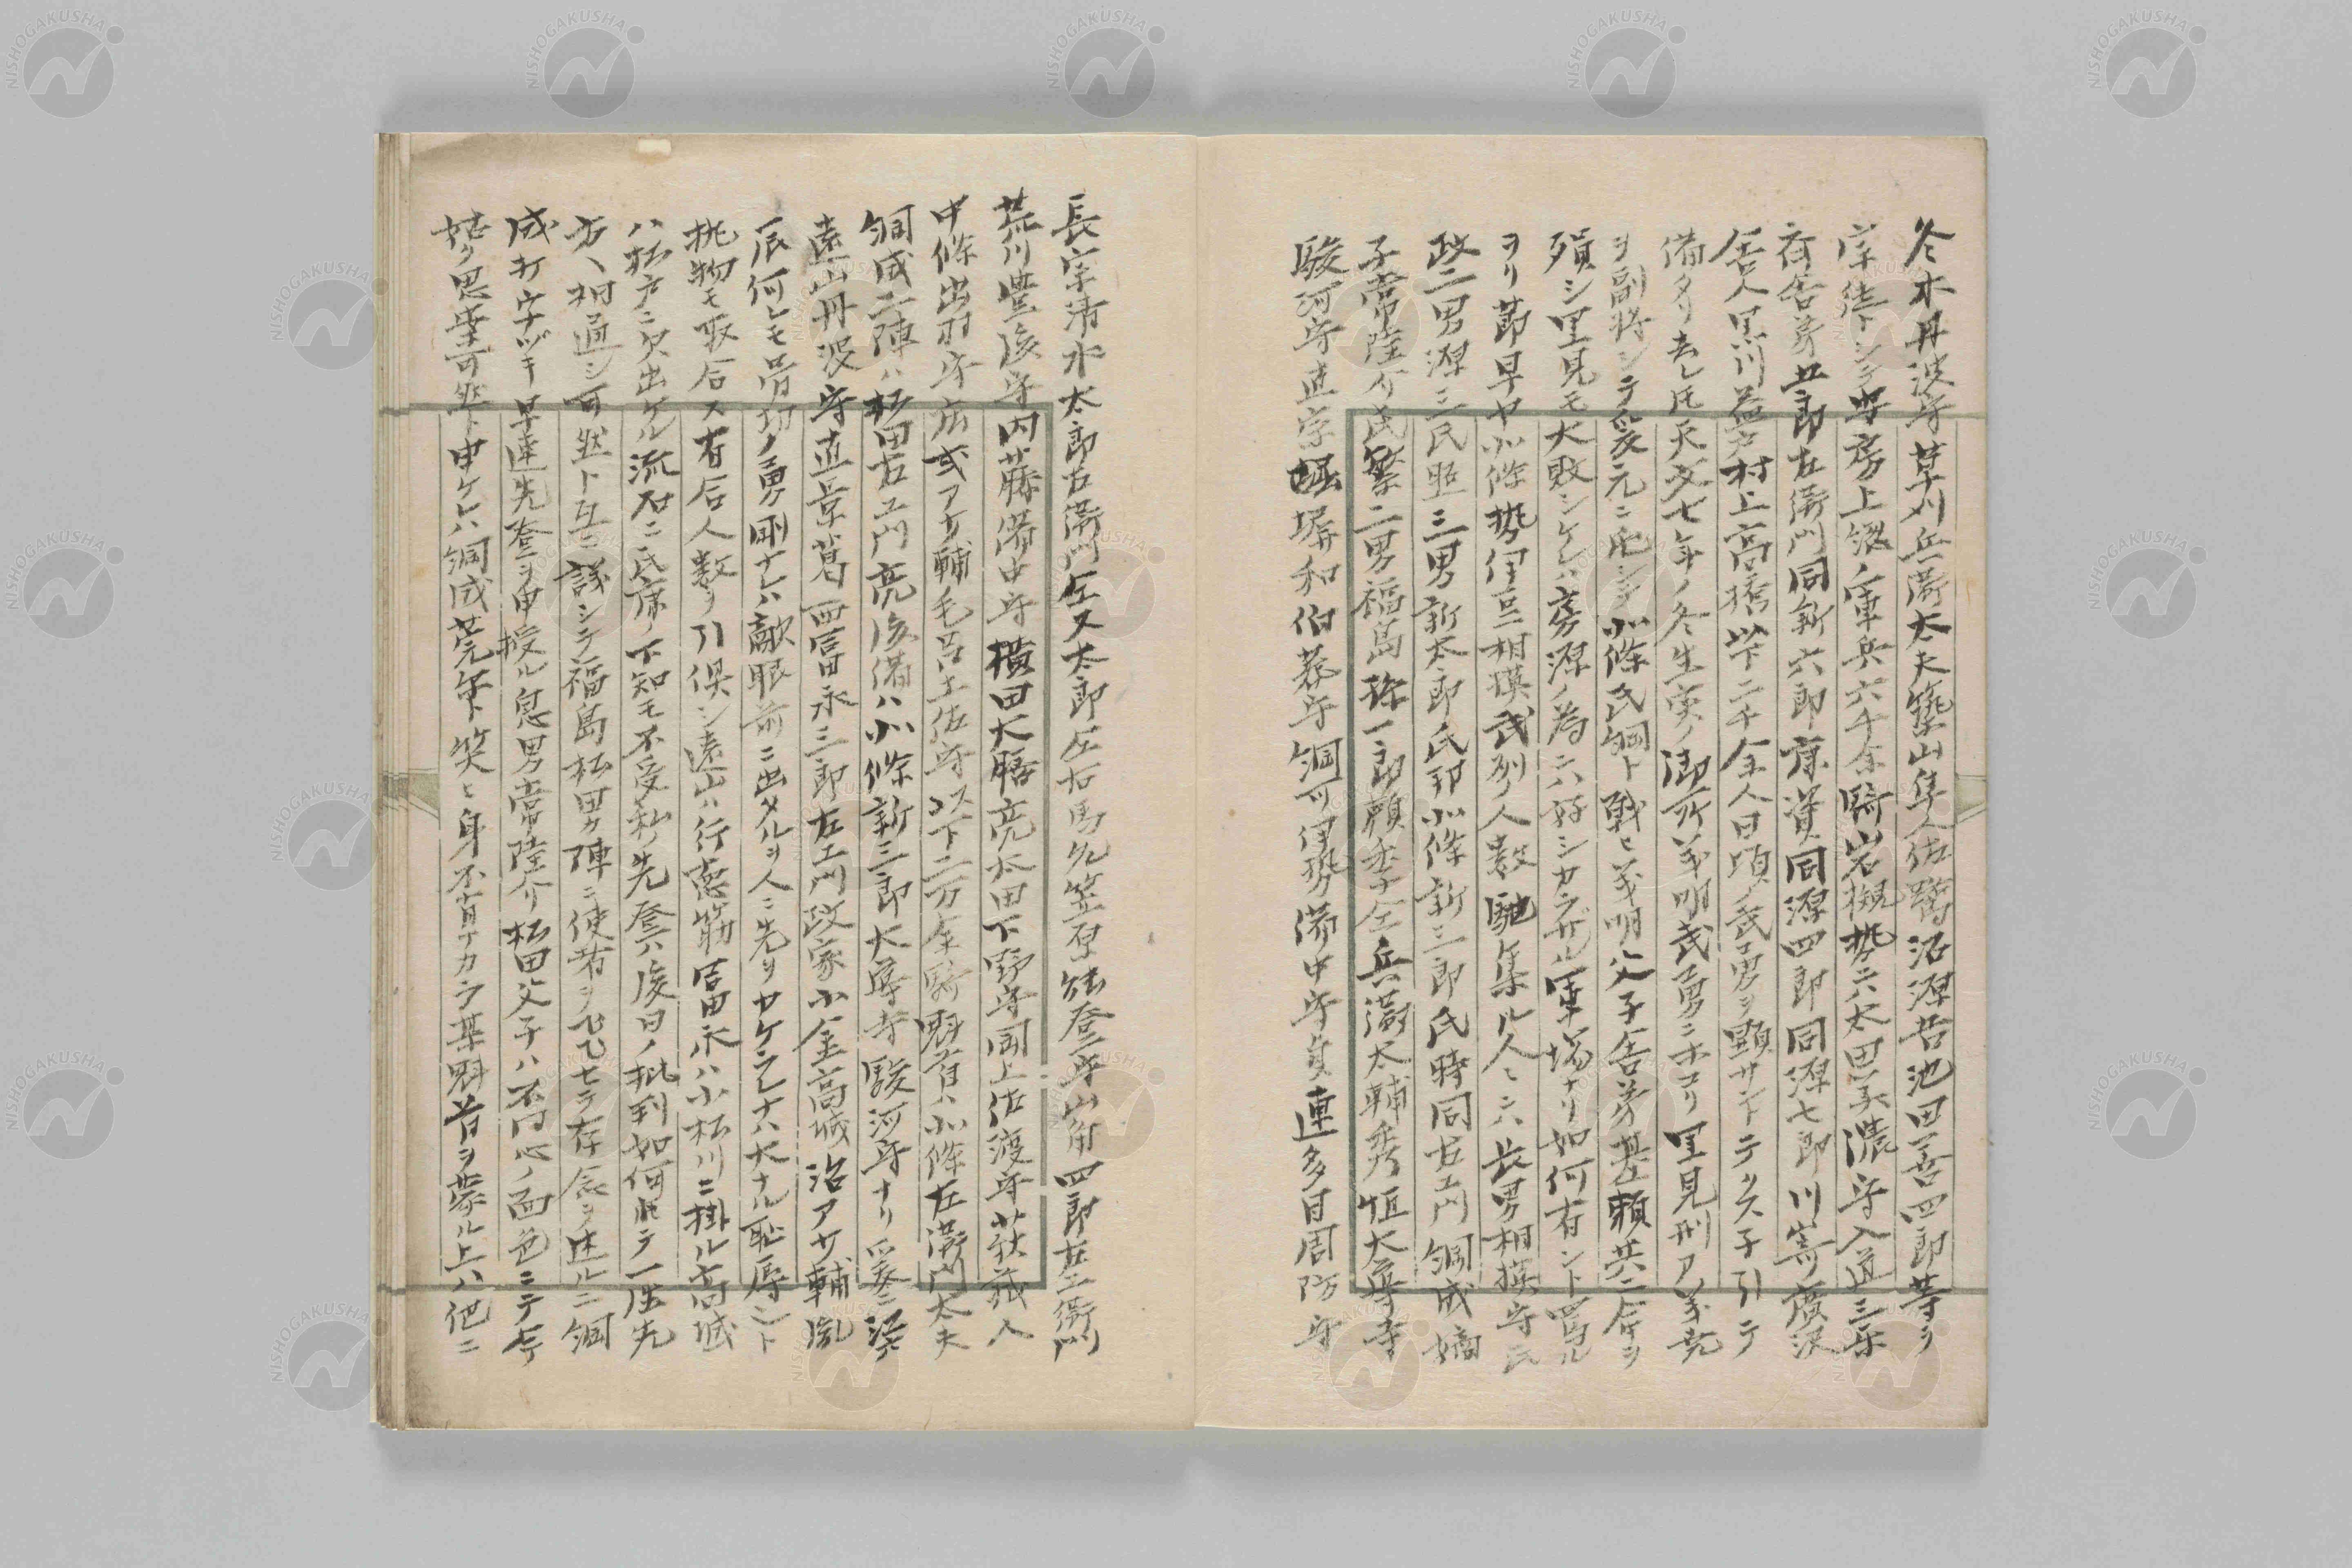 冬木丹波守草刈兵衛太夫築山隼人佐鴇沼源吾池田善四郎等ヲ
宗徒トシテ安房上総ノ軍兵六千余騎岩槻勢ニハ太田美濃守入道三楽
斉舎弟五郎左衛門同新六郎康資同源四郎同源七郎川嵜廣沢
舎人黒川益戸村上高橋以下二千余人日頃ノ武勇ヲ顕サントテクス子引テ
備タリ去レ氏天文七年ノ冬生実ノ御所義明武勇ニホコリ里見刑ア義尭
ヲ副将シテ爰元ニ出シテ北條氏綱ト戦ヒ義明父子舎弟基頼共ニ命ヲ
殞シ里見モ大敗シケレハ房源ノ為ニハ好シカラザル軍場ナリ如何有ント罵ル
ヲリ節早ヤ北條勢伊豆相模武列ノ人数馳集ル人ニハ長男相摸守氏
政二男源三氏照三男新太郎氏邦北條新三郎氏時同右エ門綱成嫡
子常陸介氏繁二男福島弥一郎頼季仝兵衛太輔秀恒大導寺
駿河守直宗堀塀和伯耆守綱可伊勢備中守貞連多目周防守
長宗清水太郎左衛門仝又太郎左右馬允笠原能登守山角四郎左エ衛門
荒川豊後守内藤備中守横田大膳亮太田下野守同上佐渡守荻莪八
中條出羽守広或アサ輔毛呂土佐守以下二万余騎魁首ハ北條左衛門太夫
綱成二陳ハ松田右エ門亮後備ハ北條新三郎大導寺駿河守ナリ爰ニ江戸
遠山丹波守直景葛西富永三郎左エ門政家小金高城治アサ輔胤
辰何レモ骨切ノ勇剛ナレハ敵眼前ニ出タルヲ人ニ先ヲカケラレナハ大ナル恥辱ント
挑物モ取合ス有合人数ヲ引倶シ遠山ハ行徳筋富永ハ小松川ニ掛ル高城
ハ松戸ニ突出ケル流石ニ氏康ノ下知モ不受私ノ先登ハ後日ノ批判如何にテ一先
方ヘ相通シ可然ト互ニ議シテ福島松田カ陣ニ使者ヲ飛セテ存念ヲ述ルニ綱
成打ウナヅキ早速先登ヲ申授ル息男常陸介松田父子ハ不同心ノ面色ニテ今
姑ク思案可然ト申ケレハ綱成莞尓ト笑ヒ身不肖ナカラ某魁首ヲ蒙ル上ハ他ニ